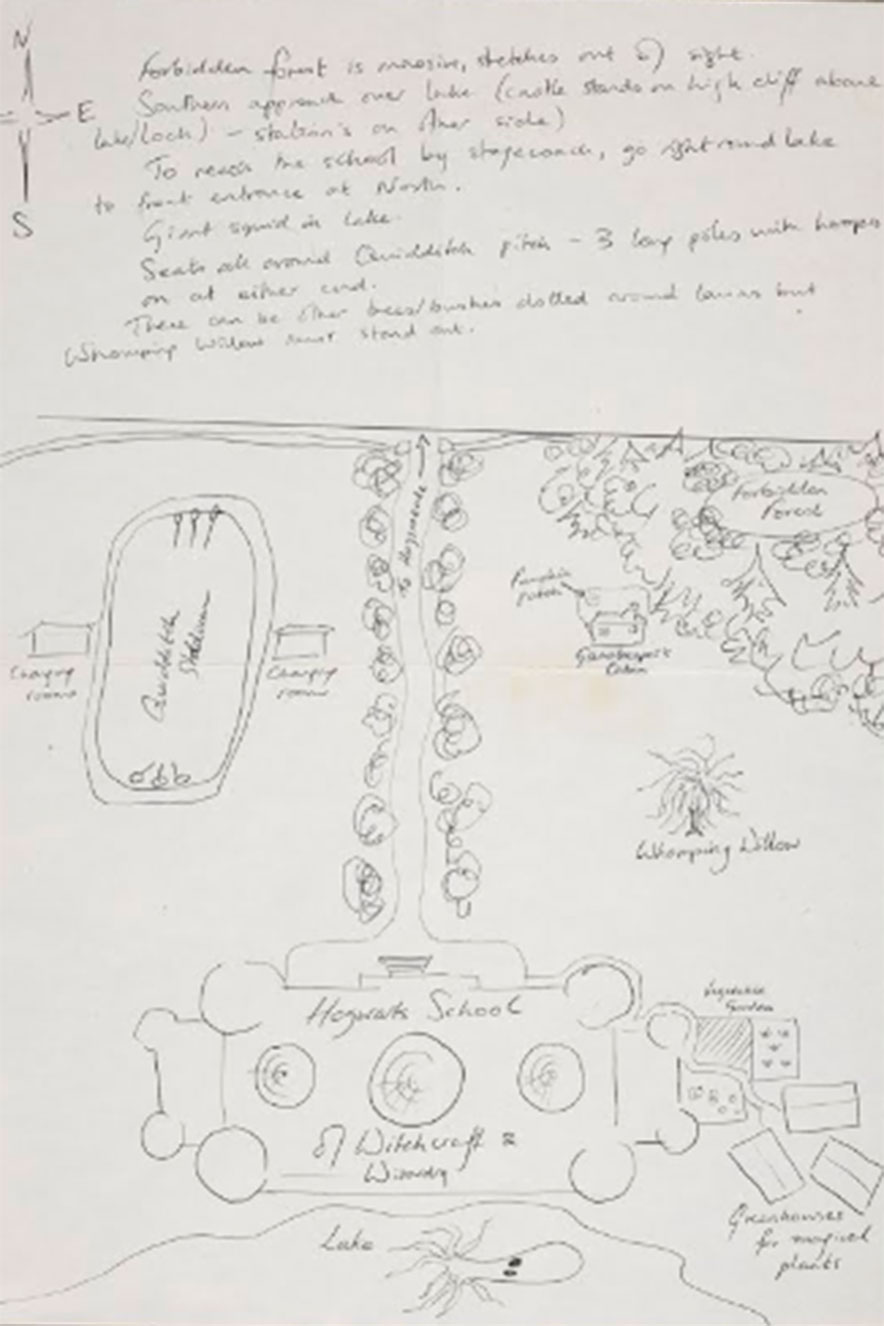 N
E
S
Forbidden forest is massive, stretches out of sight.
Southern approach over lake (castle stands on high cliff above
lake/loch) – station's on other side)
To reach the school by stagecoach, go right round lake
to front entrance at North.
Giant squid in Lake.
Seats all around Quidditch pitch – 3 long poles with hoops
on at either end.
There can be other trees/bushes dotted around lawns but
Whomping Willow must stand out.
To Hogsmeade
Forbidden
Forest
Pumpkin
patch
Gamekeeper's
Cabin
Quidditch
Stadium
Changing
rooms
Changing
rooms
Whomping Willow
Hogwarts School
of Witchcraft &
Wizardry
Vegetable
Garden
Greenhouses
for magical
plants
Lake